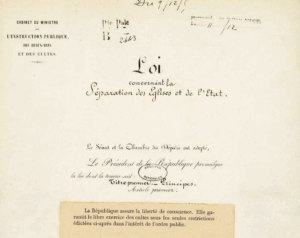 CABINET DU MINISTRE
DE
L'INSTRUCTION PUBLIQUE,
DES BEAUX-ARTS
ET DES CULTES.
Loi
concernant la
Séparation des Églises et de l'État.
Le Sénat et la Chambre des Députés ont adopté,
Le Président de la République promulgue
la loi dont la teneur suit :
Titre premier — Principes.
Article premier.
La République assure la liberté de conscience. Elle ga-
rantit le libre exercice des cultes sous les seules restrictions
édictées ci-après dans l'intérêt de l'ordre public.